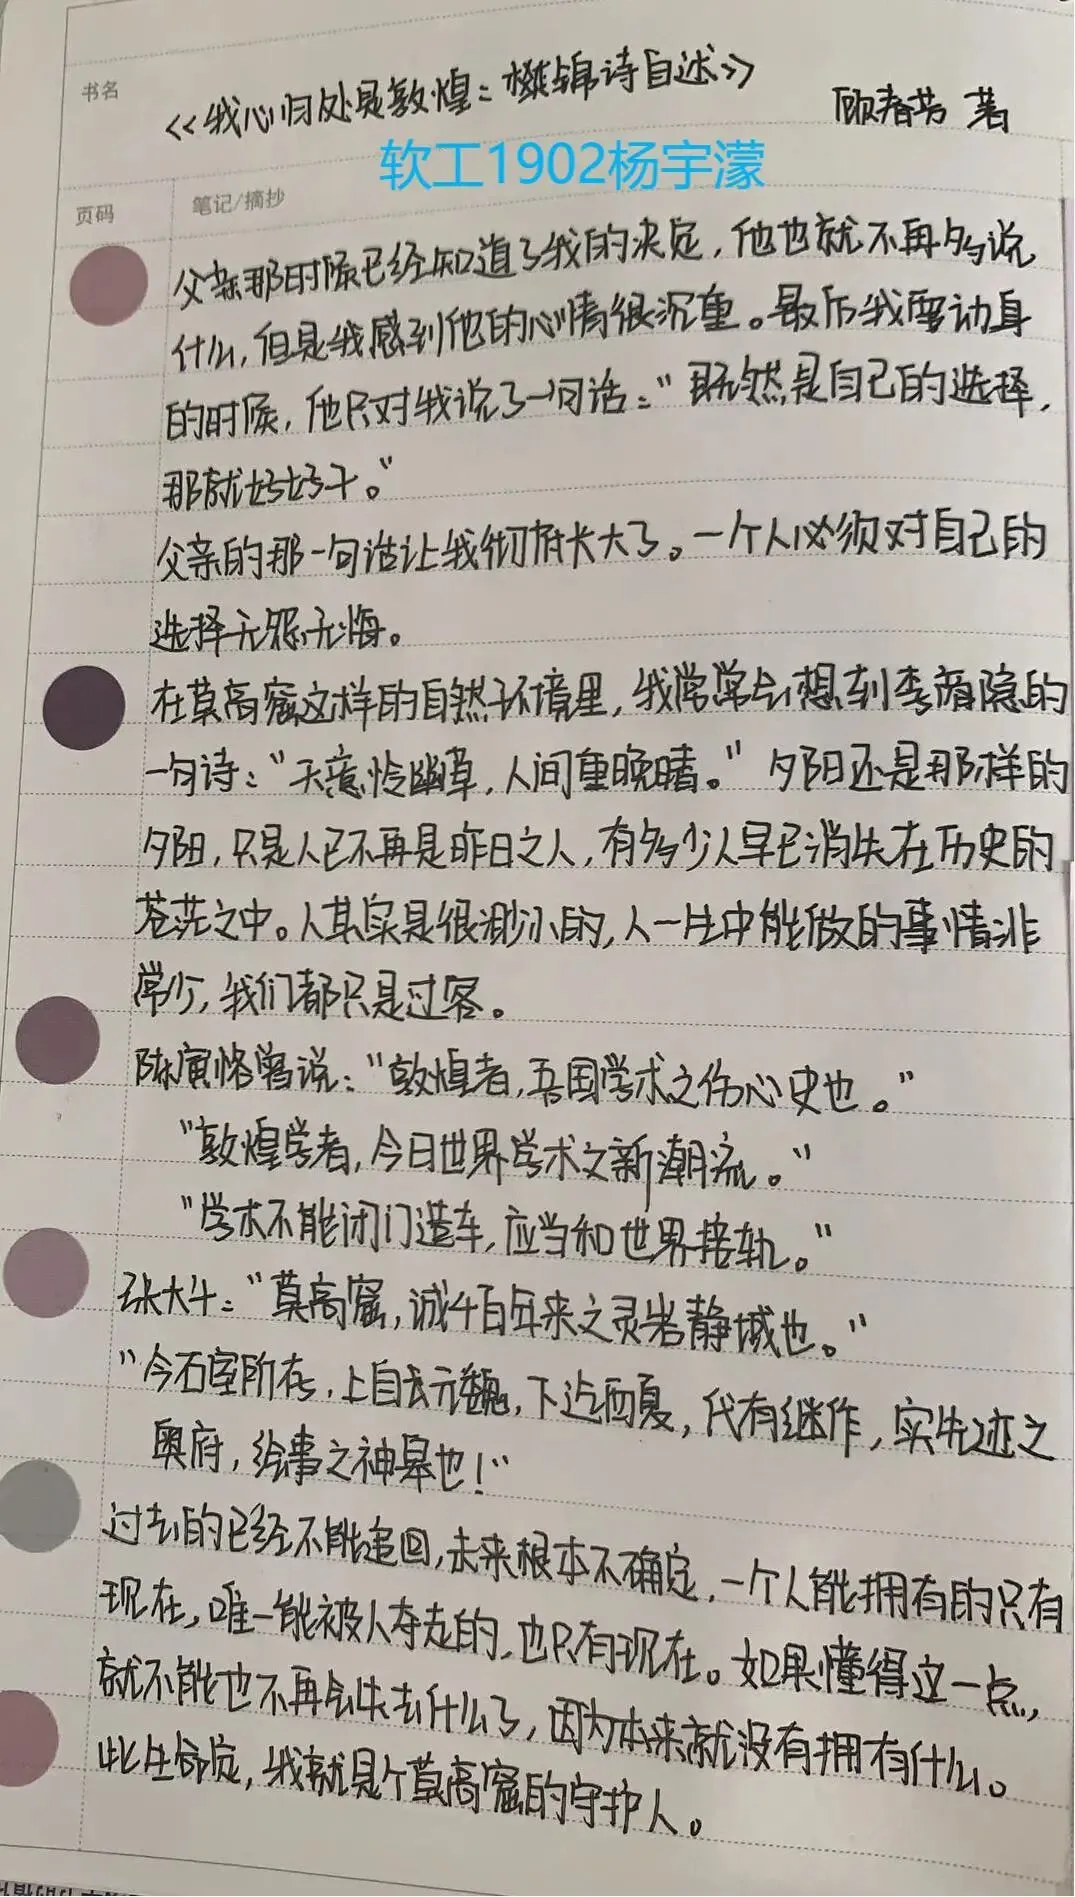 书名
《我心归处是敦煌：樊锦诗自述》 顾春芳 著
软工1902杨宇濛
页码 笔记/摘抄
父亲那时候已经知道了我的决定，他也就不再多说
什么，但是我感到他的心情很沉重。最后我要动身
的时候，他只对我说了一句话：“既然是自己的选择，
那就好好干。”
父亲的那一句话让我彻底长大了。一个人必须对自己的
选择无怨无悔。
在莫高窟这样的自然环境里，我常常会想到李商隐的
一句诗：“天意怜幽草，人间重晚晴。”夕阳还是那样的
夕阳，只是人已不再是昨日之人，有多少人早已消失在历史的
苍茫之中。人其实是很渺小的，人一生中能做的事情非
常少，我们都只是过客。
陈寅恪曾说：“敦煌者，吾国学术之伤心史也。”
“敦煌学者，今日世界学术之新潮流。”
“学术不能闭门造车，应当和世界接轨。”
张大千：“莫高窟，诚千百年来之灵岩静域也。”
“今石室所存，上自元魏，下迄西夏，代有继作，实先迹之
奥府，绘事之神皋也！”
过去的已经不能追回，未来根本不确定，一个人能拥有的只有
现在，唯一能被人夺走的，也只有现在。如果懂得这一点，
就不能也不再会失去什么了，因为本来就没有拥有什么。
此生命定，我就是个莫高窟的守护人。